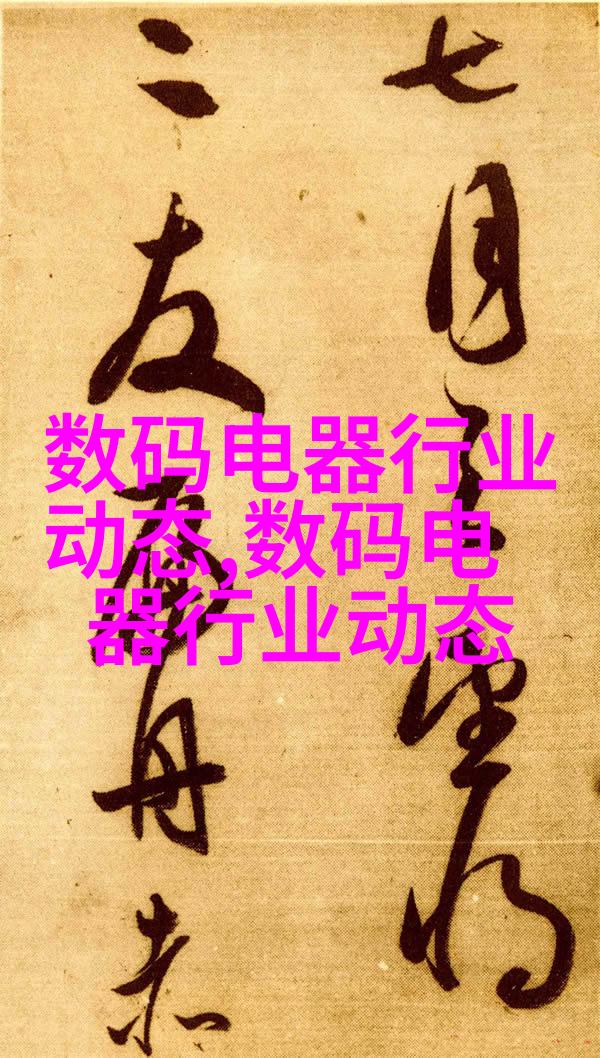 七月望将
二友舟赤
数码电器行业
动态,数码电
器行业动态